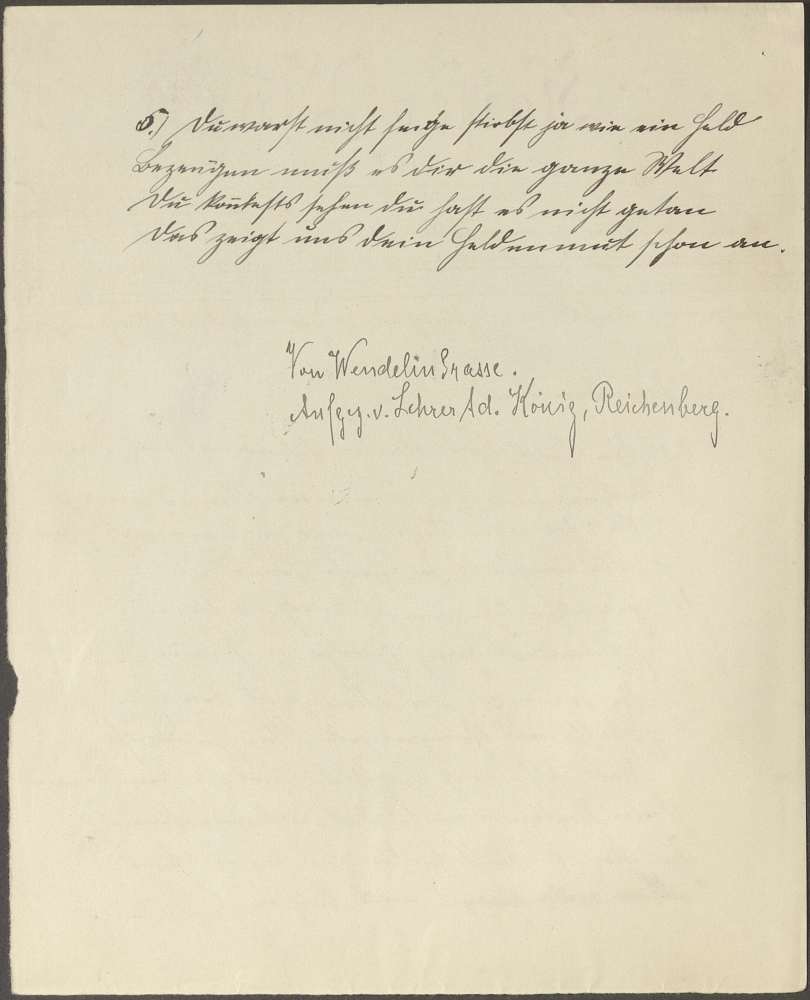 6.) Du warst nicht feige stirbst ja wie ein Held
Bezeugen muß es dir die ganze Welt
Du konntests sehen du hast es nicht getan
Das zeigt uns dein Heldenmut schon an.
Von Wendelin Grasse.
Aufgez. v. Lehrer Ad. König, Reichenberg.